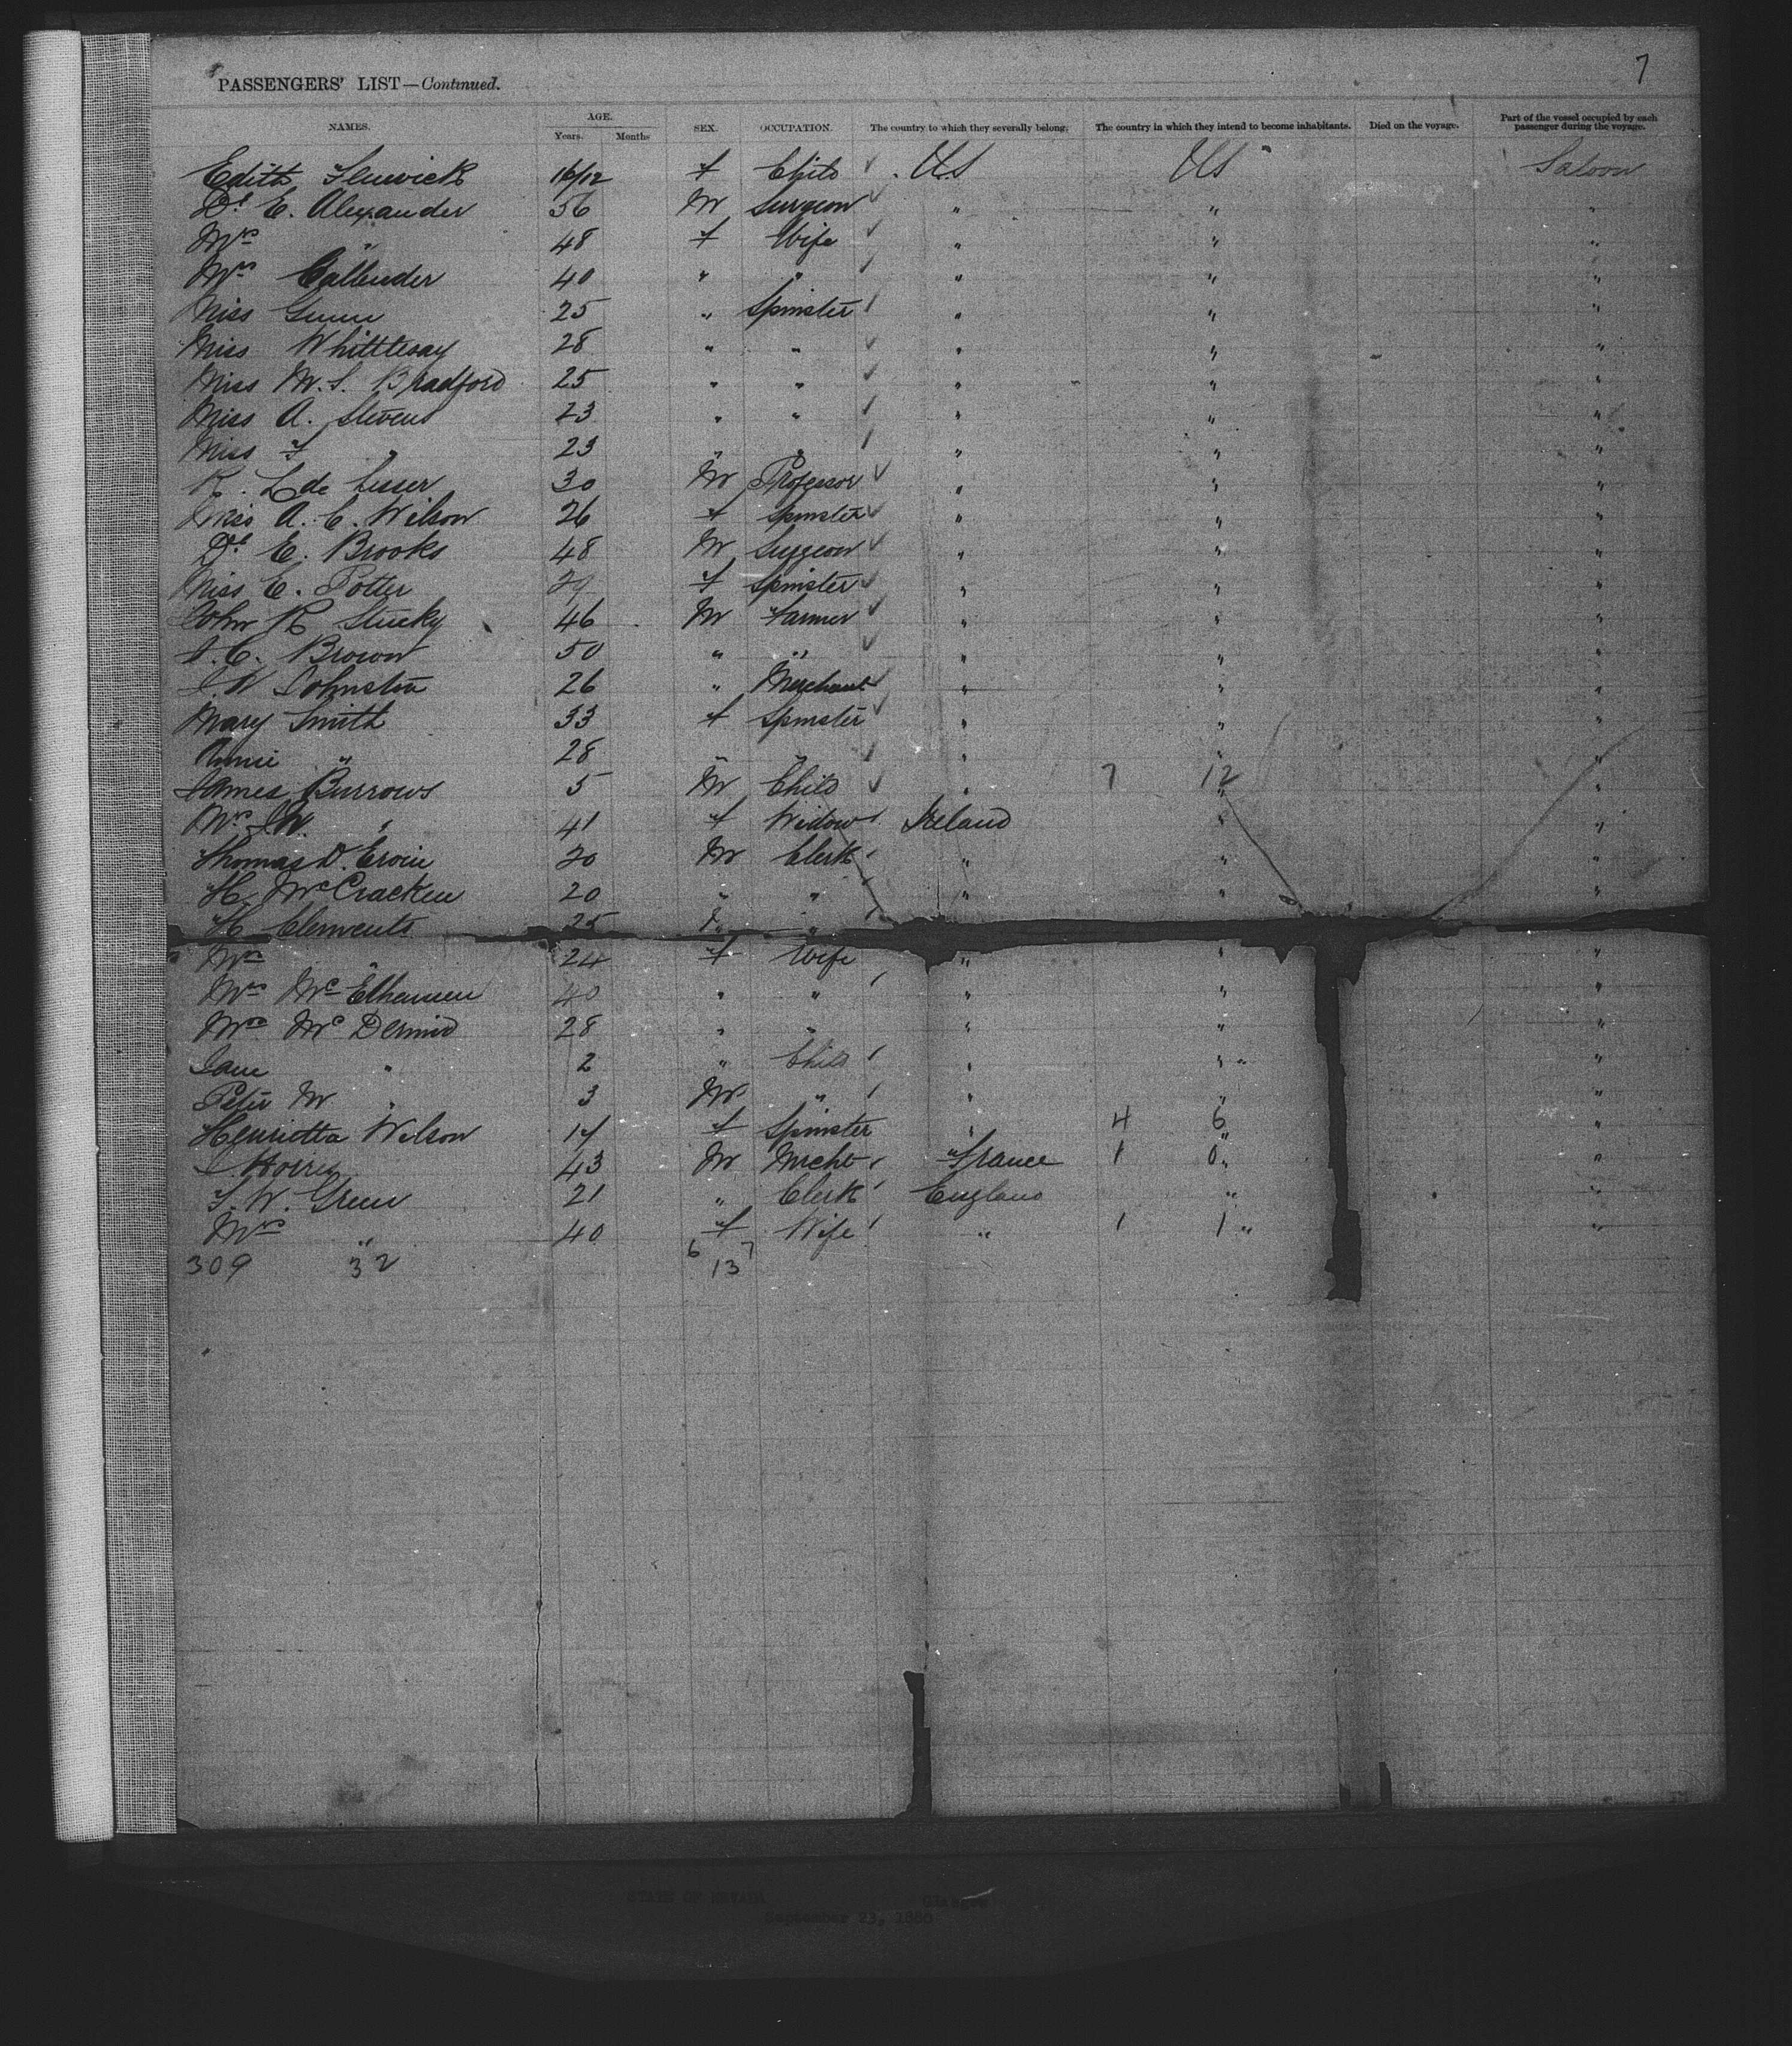 7
PASSENGERS' LIST—Continued.
NAMES. AGE. Years. Months SEX. OCCUPATION. The country to which they severally belong. The country in which they intend to become inhabitants. Died on the voyage. Part of the vessel occupied by each passenger during the voyage.
Edith Fenwick 16/12 f Child US US " Saloon
Dr E. Alexander 56 M Surgeon " " "
Mrs " 48 f Wife " " "
Mrs Callender 40 " " " " "
Miss Gunn 25 " Spinster " " "
Miss Whittlesay 28 " " " " "
Miss M. S. Bradford 25 " " " " "
Miss A. Stevens 23 " " " " "
Miss F " 23 " " " " "
R. L de Lisser 30 M Professor " " "
Miss A. C. Wilson 26 f Spinster " " "
Dr E. Brooks 48 M Surgeon " " "
Miss E. Potter 29 f Spinster " " "
John R Stucky 46 M Farmer " " "
C. Brown 50 " " " " "
J. W Johnston 26 " Merchant " " "
Mary Smith 33 f Spinster " " "
Annie " 28 " " " " "
James Burrows 5 M Child " 7 12 " "
Mrs J W. " 41 f Widow Ireland " "
Thomas D. Erwin 20 M Clerk " " "
H. McCracken 20 " " " " "
H Clements 25 " " "
Mrs " 24 f Wife " " "
Mrs Mc 40 " " " " "
Mrs McDermid 28 " " " " "
Jane " 2 " Child " " " "
Peter M " 3 M " " " "
Henrietta Wilson 14 f Spinster " 4 6 " "
43 M Mcht France 1 0 " "
F. W. Green 21 " Clerk England " "
Mrs " 40 f Wife " 1 1 " "
309 32 6 7 13
STATE OF NEVADA Glasgow
September 23, 1886